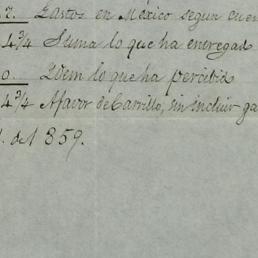 .7. Gastos en México segun cuen
4 3/4 Suma lo que ha entregad
0. Idem lo que ha percibid
4 3/4 A favor de Carrillo, sin incluir ga
. del 859.